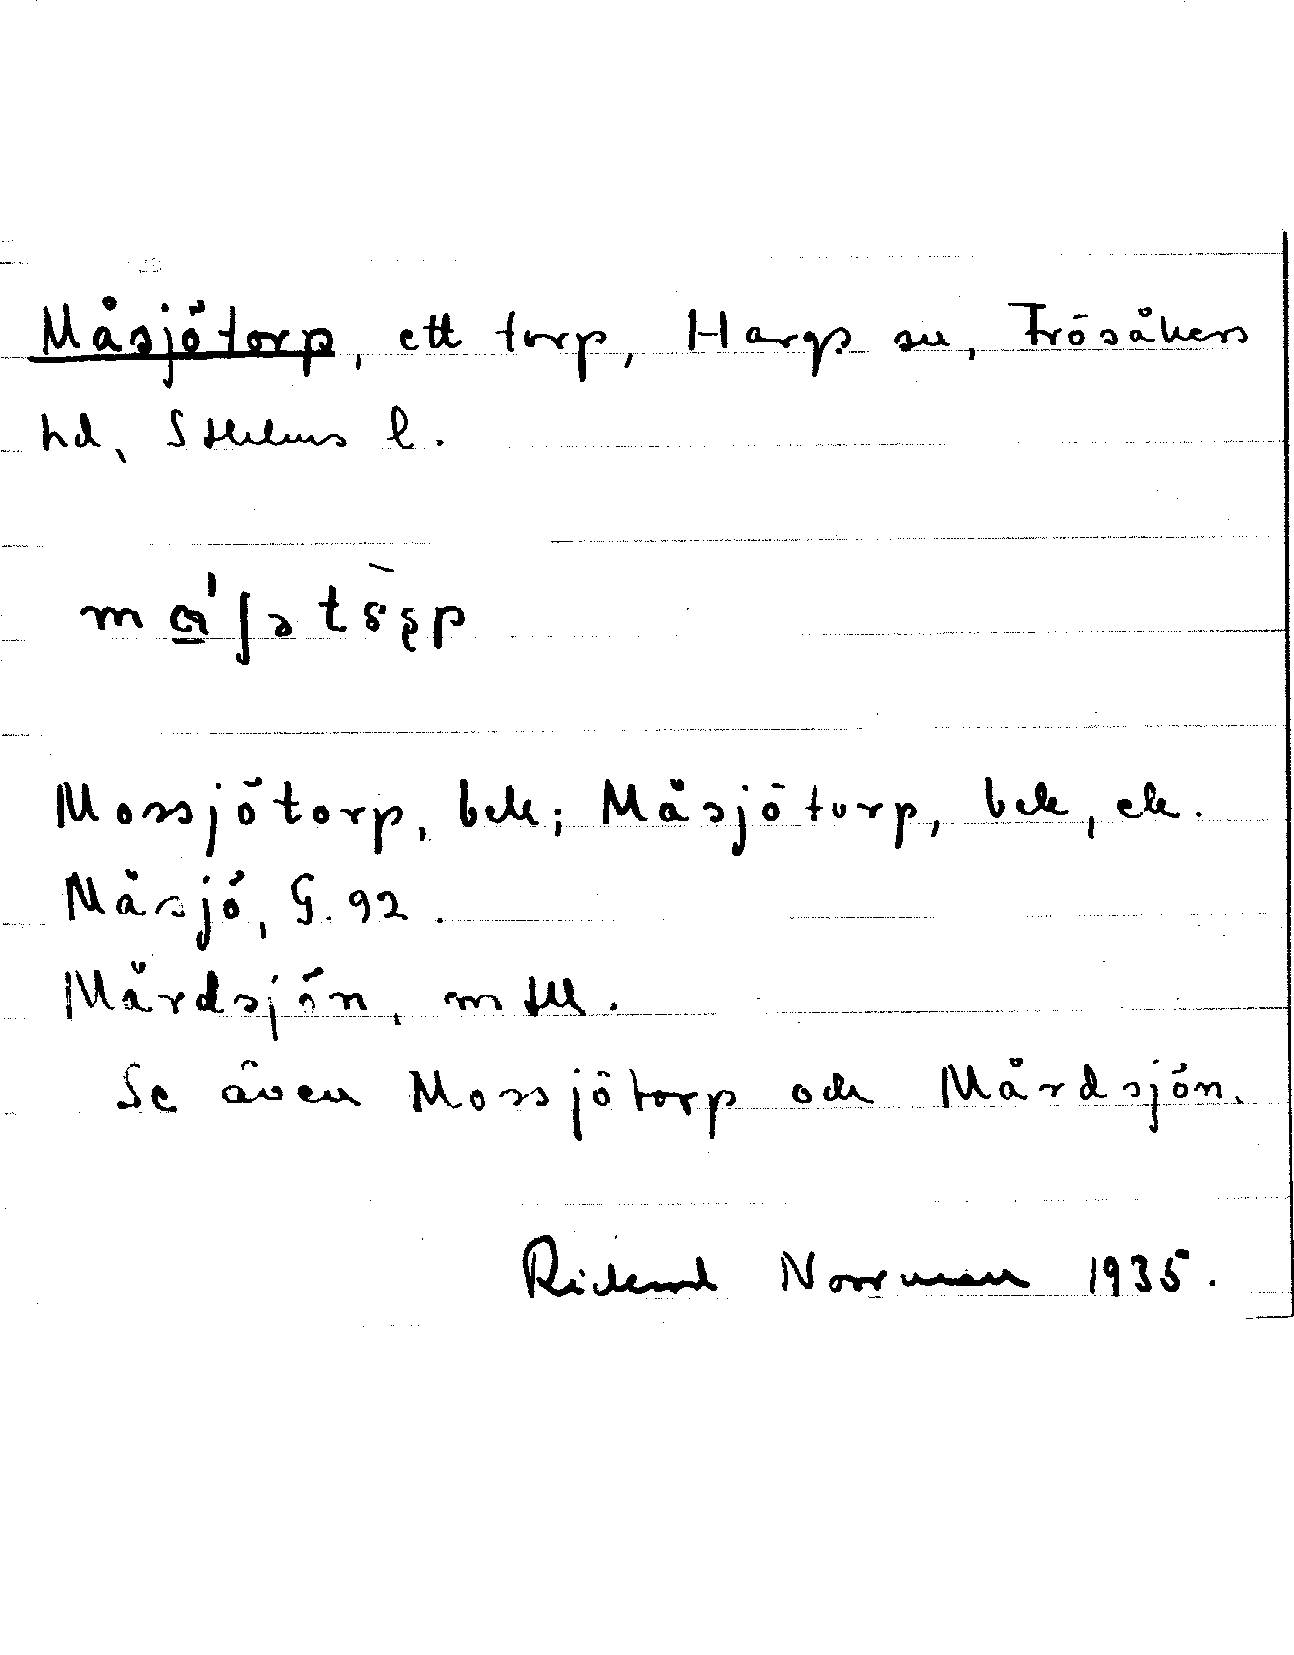 Måsjötorp, ett torp, Hargs sn, Frösåkers
hd, Sthlms l.
Mossjötorp, bek; Måsjötorp, bek, ek.
Måsjö, G. 92.
Mårdsjön, mtbl.
Se även Mossjötorp och Mårdsjön.
Rickard Norrman 1935.